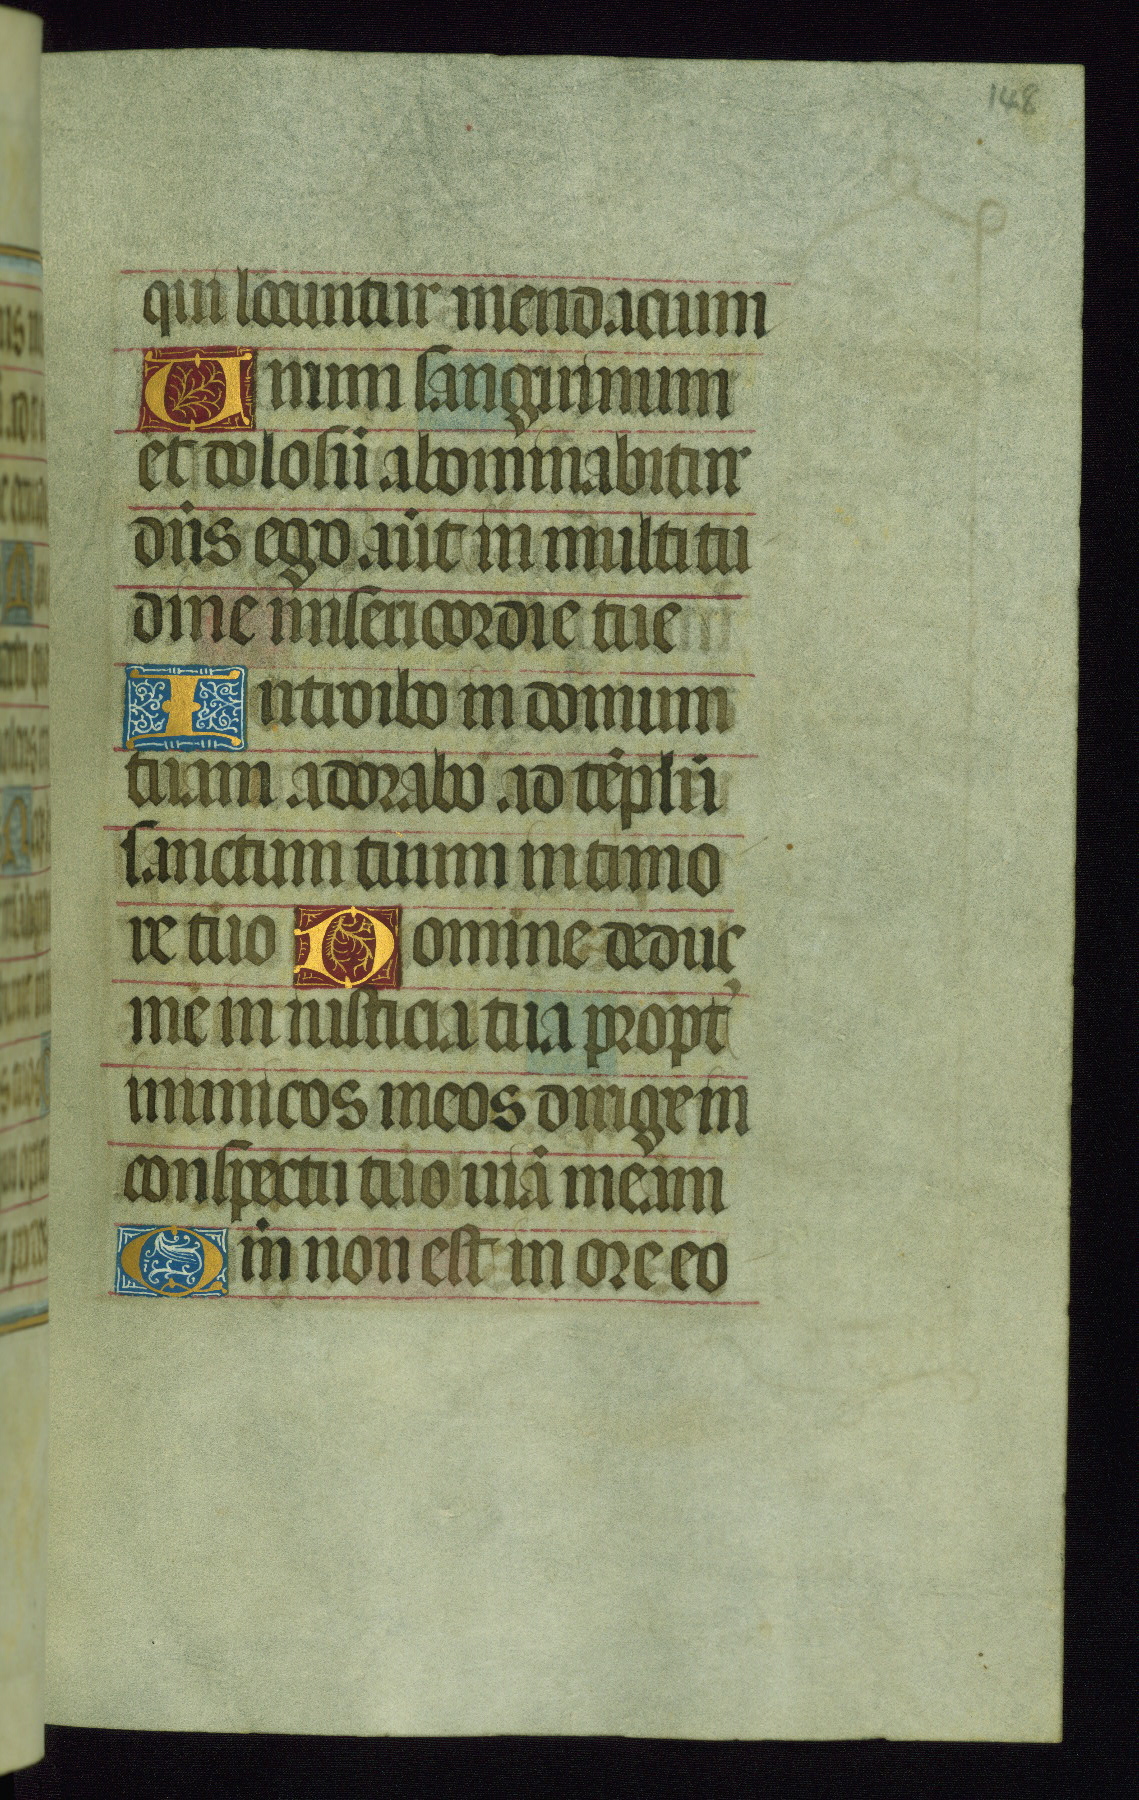 148
qui locuntur mendacium
Uirum sanguinum
et dolosū abominabitur
dn̄s ego aūt in multitu
dine misericordie tue
Introibo in domum
tuam adorabo ad tēplū
sanctum tuum in timo
re tuo Domine deduc
me in iusticia tua propt'
inimicos meos dirige in
conspectu tuo uiā meam
Qm̄ non est in ore eo